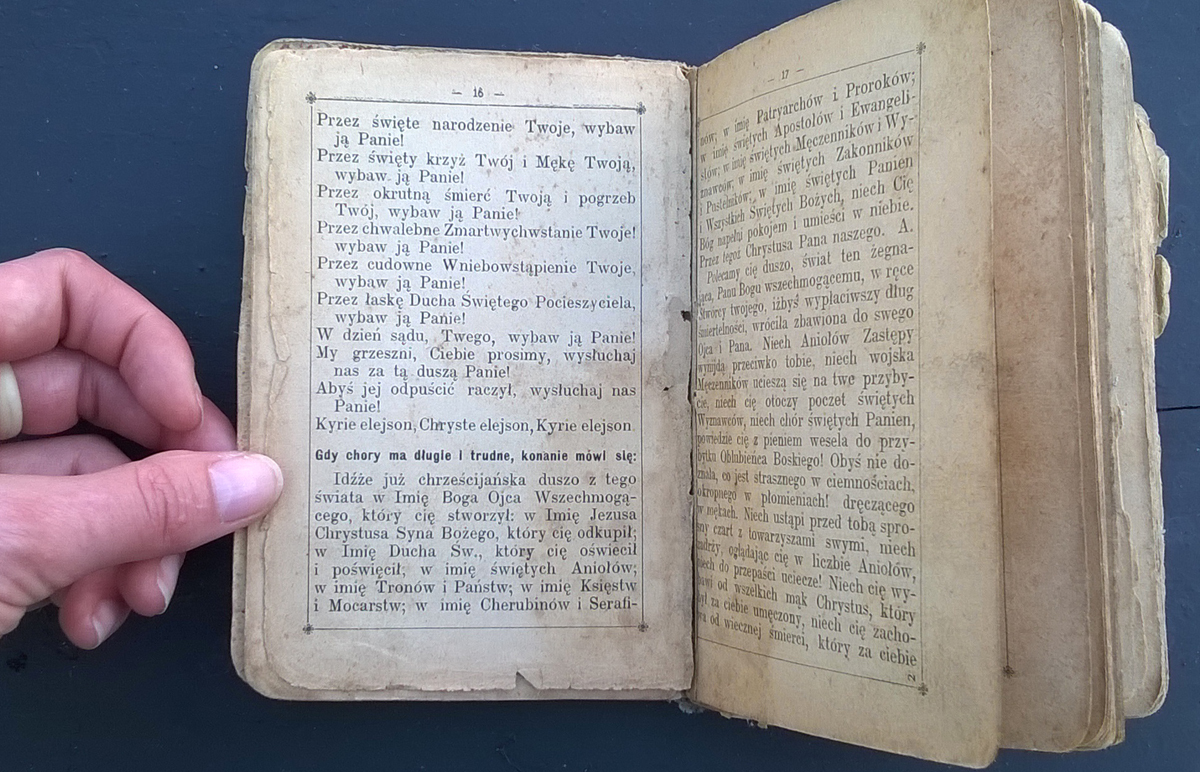 — 16 —
Przez święte narodzenie Twoje, wybaw
ją Panie!
Przez święty krzyż Twój i Mękę Twoją,
wybaw ją Panie!
Przez okrutną śmierć Twoją i pogrzeb
Twój, wybaw ją Panie!
Przez chwalebne Zmartwychwstanie Twoje!
wybaw ją Panie!
Przez cudowne Wniebowstąpienie Twoje,
wybaw ją Panie!
Przez łaskę Ducha Świętego Pocieszyciela,
wybaw ją Panie!
W dzień sądu, Twego, wybaw ją Panie!
My grzeszni, Ciebie prosimy, wysłuchaj
nas za tą duszą Panie!
Abyś jej odpuścić raczył, wysłuchaj nas
Panie!
Kyrie elejson, Chryste elejson, Kyrie elejson
Gdy chory ma długie i trudne, konanie mówi się:
Idźże już chrześcijańska duszo z tego
świata w Imię Boga Ojca Wszechmogą-
cego, który cię stworzył: w Imię Jezusa
Chrystusa Syna Bożego, który cię odkupił;
w Imię Ducha Św., który cię oświecił
i poświęcił; w imię świętych Aniołów;
w imię Tronów i Państw; w imię Księstw
i Mocarstw; w imię Cherubinów i Serafi-
— 17 —
nów; w imię Patryarchów i Proroków;
w imię świętych Apostołów i Ewangeli-
stów; w imię świętych Męczenników i Wy-
znawców; w imię świętych Zakonników
i Pustelników; w imię świętych Panien
i Wszystkich Świętych Bożych, niech Cię
Bóg napełni pokojem i umieści w niebie.
Przez tegoż Chrystusa Pana naszego. A.
Polecamy cię duszo, świat ten żegna-
jąca, Panu Bogu wszechmogącemu, w ręce
Stwórcy twojego, iżbyś wypłaciwszy dług
śmiertelności, wróciła zbawiona do swego
Ojca i Pana. Niech Aniołów Zastępy
wynijdą przeciwko tobie, niech wojska
Męczenników ucieszą się na twe przyby-
cie, niech cię otoczy poczet świętych
Wyznawców, niech chór świętych Panien,
powiedzie cię z pieniem wesela do przy-
bytku Oblubieńca Boskiego! Obyś nie do-
znała, co jest strasznego w ciemnościach,
okropnego w płomieniach! dręczącego
w mękach. Niech ustąpi przed tobą spro-
sny czart z towarzyszami swymi, niech
zadrży, oglądając cię w liczbie Aniołów,
niech do przepaści uciecze! Niech cię wy-
bawi od wszelkich mąk Chrystus, który
był za ciebie umęczony, niech cię zacho-
wa od wiecznej śmierci, który za ciebie
2